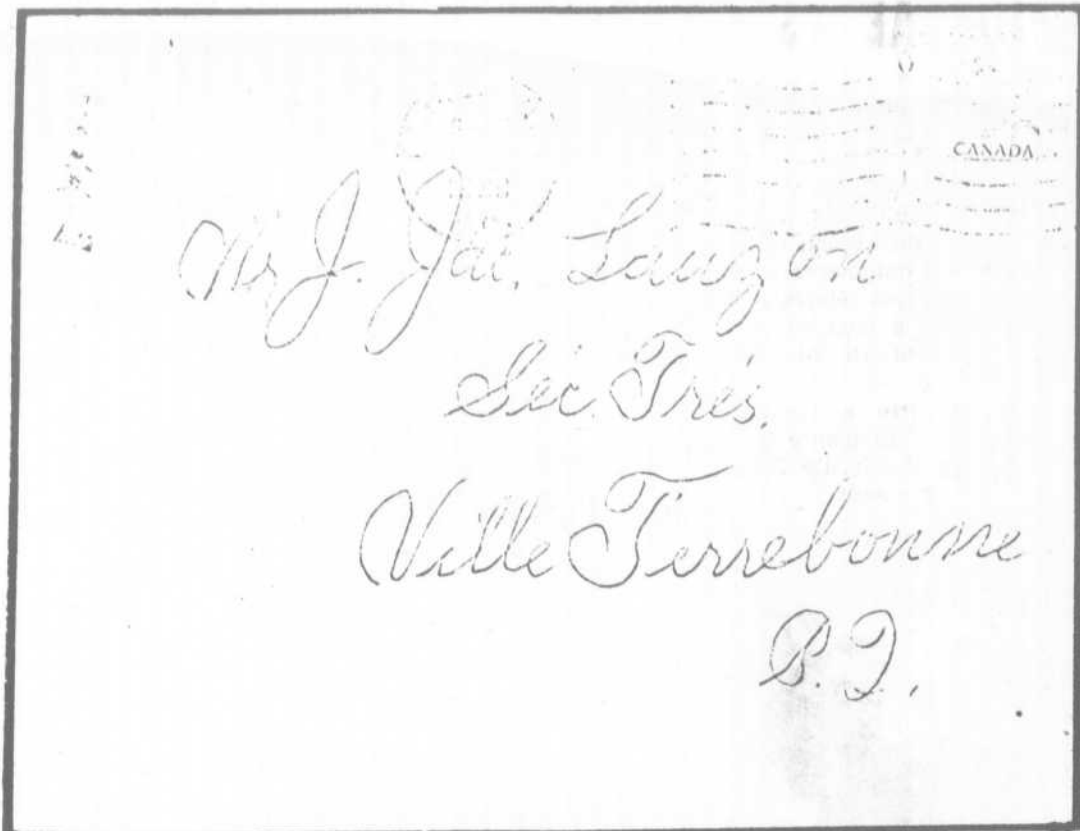 CANADA
Mr J. Jul. Lauzon
Séc. Trés.
Ville Terrebonne
P.Q.